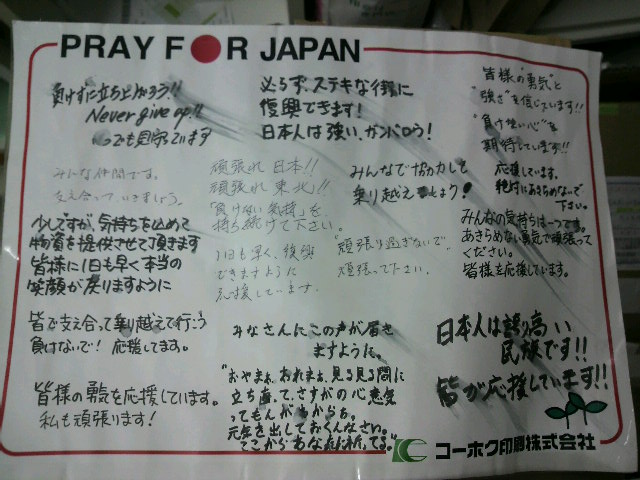 PRAY FOR JAPAN
負けずに立ち上がろう!!
Never give up!!
いつでも見守っています
必らず、ステキな街に
復興できます!
日本人は強い、ガンバロう!
皆様の"勇気"と
"強さ"を信じています!!
"負けない心"を
期待しています!!
みんな仲間です。
支え合っていきましょう。
頑張れ日本!!
頑張れ東北!!
「負けない気持」を
持ち続けて下さい。
みんなで協力して
乗り越えましょう!
応援しています。
絶対にあきらめないで
下さい。
少しですが、気持ちを込めて
物資を提供させて頂きます
皆様に1日も早く本当の
笑顔が戻りますように
1日も早く、復興
できますように
応援しています。
"頑張り過ぎないで"
頑張って下さい。
みんなの気持ちは一つです。
あきらめない勇気で頑張って
ください。
皆様を応援しています。
皆で支え合って乗り越えて行こう
負けないで!応援してます。
みなさんにこの声が届き
ますように。
日本人は誇り高い
民族です!!
皆が応援しています!!
皆様の勇気を応援しています。
私も頑張ります!
見る見る間に
立ち直って、さすがの心意気
元気を出しておくんなさい。
コーホク印刷株式会社